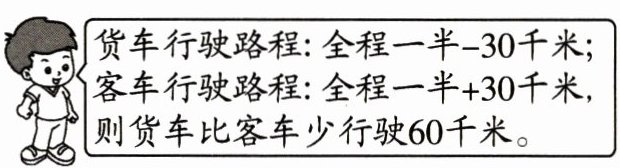 货车行驶路程:全程一半-30千米;
客车行驶路程:全程一半+30千米,
则货车比客车少行驶60千米。